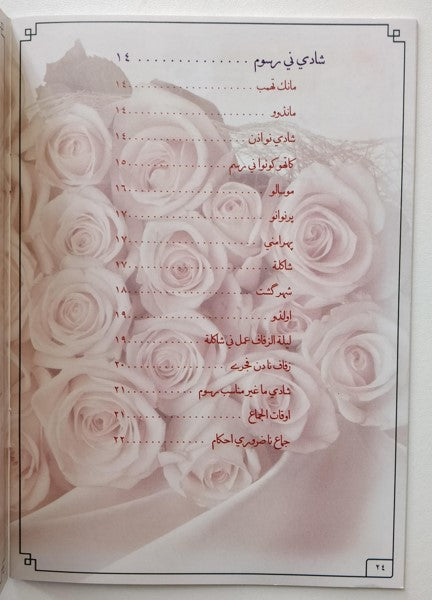 شادي ني رسوم .............. ١٤
مانك تهمب .............. ١٤
مانڈوو .............. ١٤
شادي نو اذن .............. ١٤
كانهو كونوا ني رسم .............. ١٥
موسالو .............. ١٦
پرنوانو .............. ١٧
پهرامني .............. ١٧
شاكلة .............. ١٧
شهر گشت .............. ١٨
اولفو .............. ١٩
ليلة الزفاف عمل ني شاكلة .............. ١٩
زفاف نا دن فجرے .............. ٢٠
شادي ما غير مناسب رسوم .............. ٢١
اوقات الجماع .............. ٢١
جماع نا ضروري احكام .............. ٢٢
٢٤